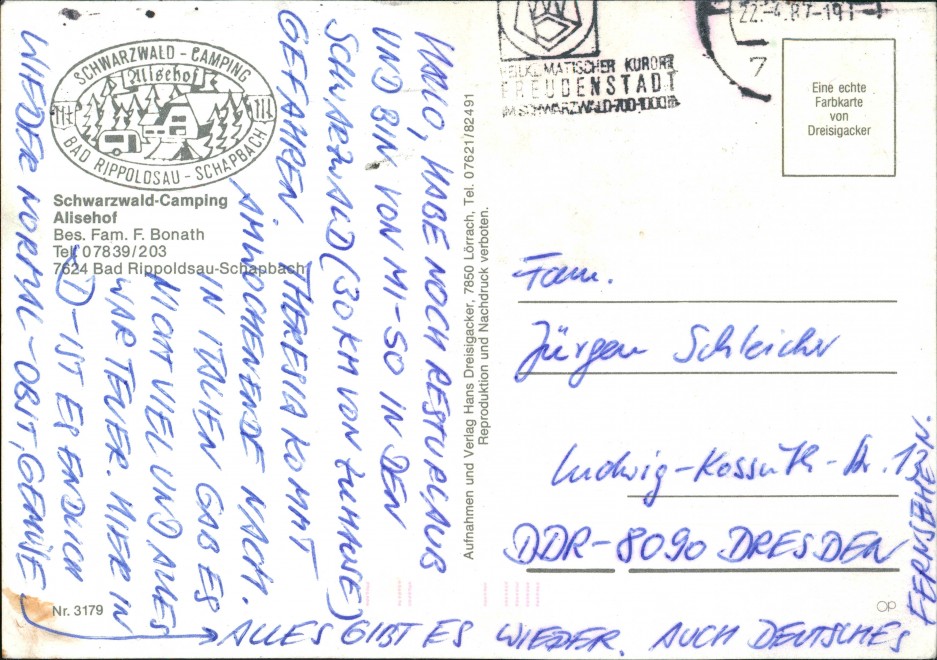 SCHWARZWALD - CAMPING
Alisehof
BAD RIPPOLDSAU - SCHAPBACH
Schwarzwald-Camping
Alisehof
Bes. Fam. F. Bonath
Tel. 07839/203
7624 Bad Rippoldsau-Schapbach
HALLO, HABE NOCH RESTURLAUB
UND BIN VON MI-SO IN DEN
SCHWARZWALD (30 KM VON ZUHAUSE)
GEFAHREN. THERESIA KOMMT
AM WOCHENENDE NACH.
IN ITALIEN GAB ES
NICHT VIEL UND ALLES
WAR TEUER. HIER IN
D - IST ES ENDLICH
WIEDER NORMAL - OBST, GEMÜSE
→ ALLES GIBT ES WIEDER. AUCH DEUTSCHES
FERNSEHEN.
Nr. 3179
Aufnahmen und Verlag Hans Dreisigacker, 7850 Lörrach, Tel. 07621/82491
Reproduktion und Nachdruck verboten.
HEILKLIMATISCHER KURORT
FREUDENSTADT
IM SCHWARZWALD·700-1000m
22.-4.87-19
7
Eine echte
Farbkarte
von
Dreisigacker
Fam.
Jürgen Schleicher
Ludwig-Kossuth-Str. 13
DDR-8090 DRESDEN